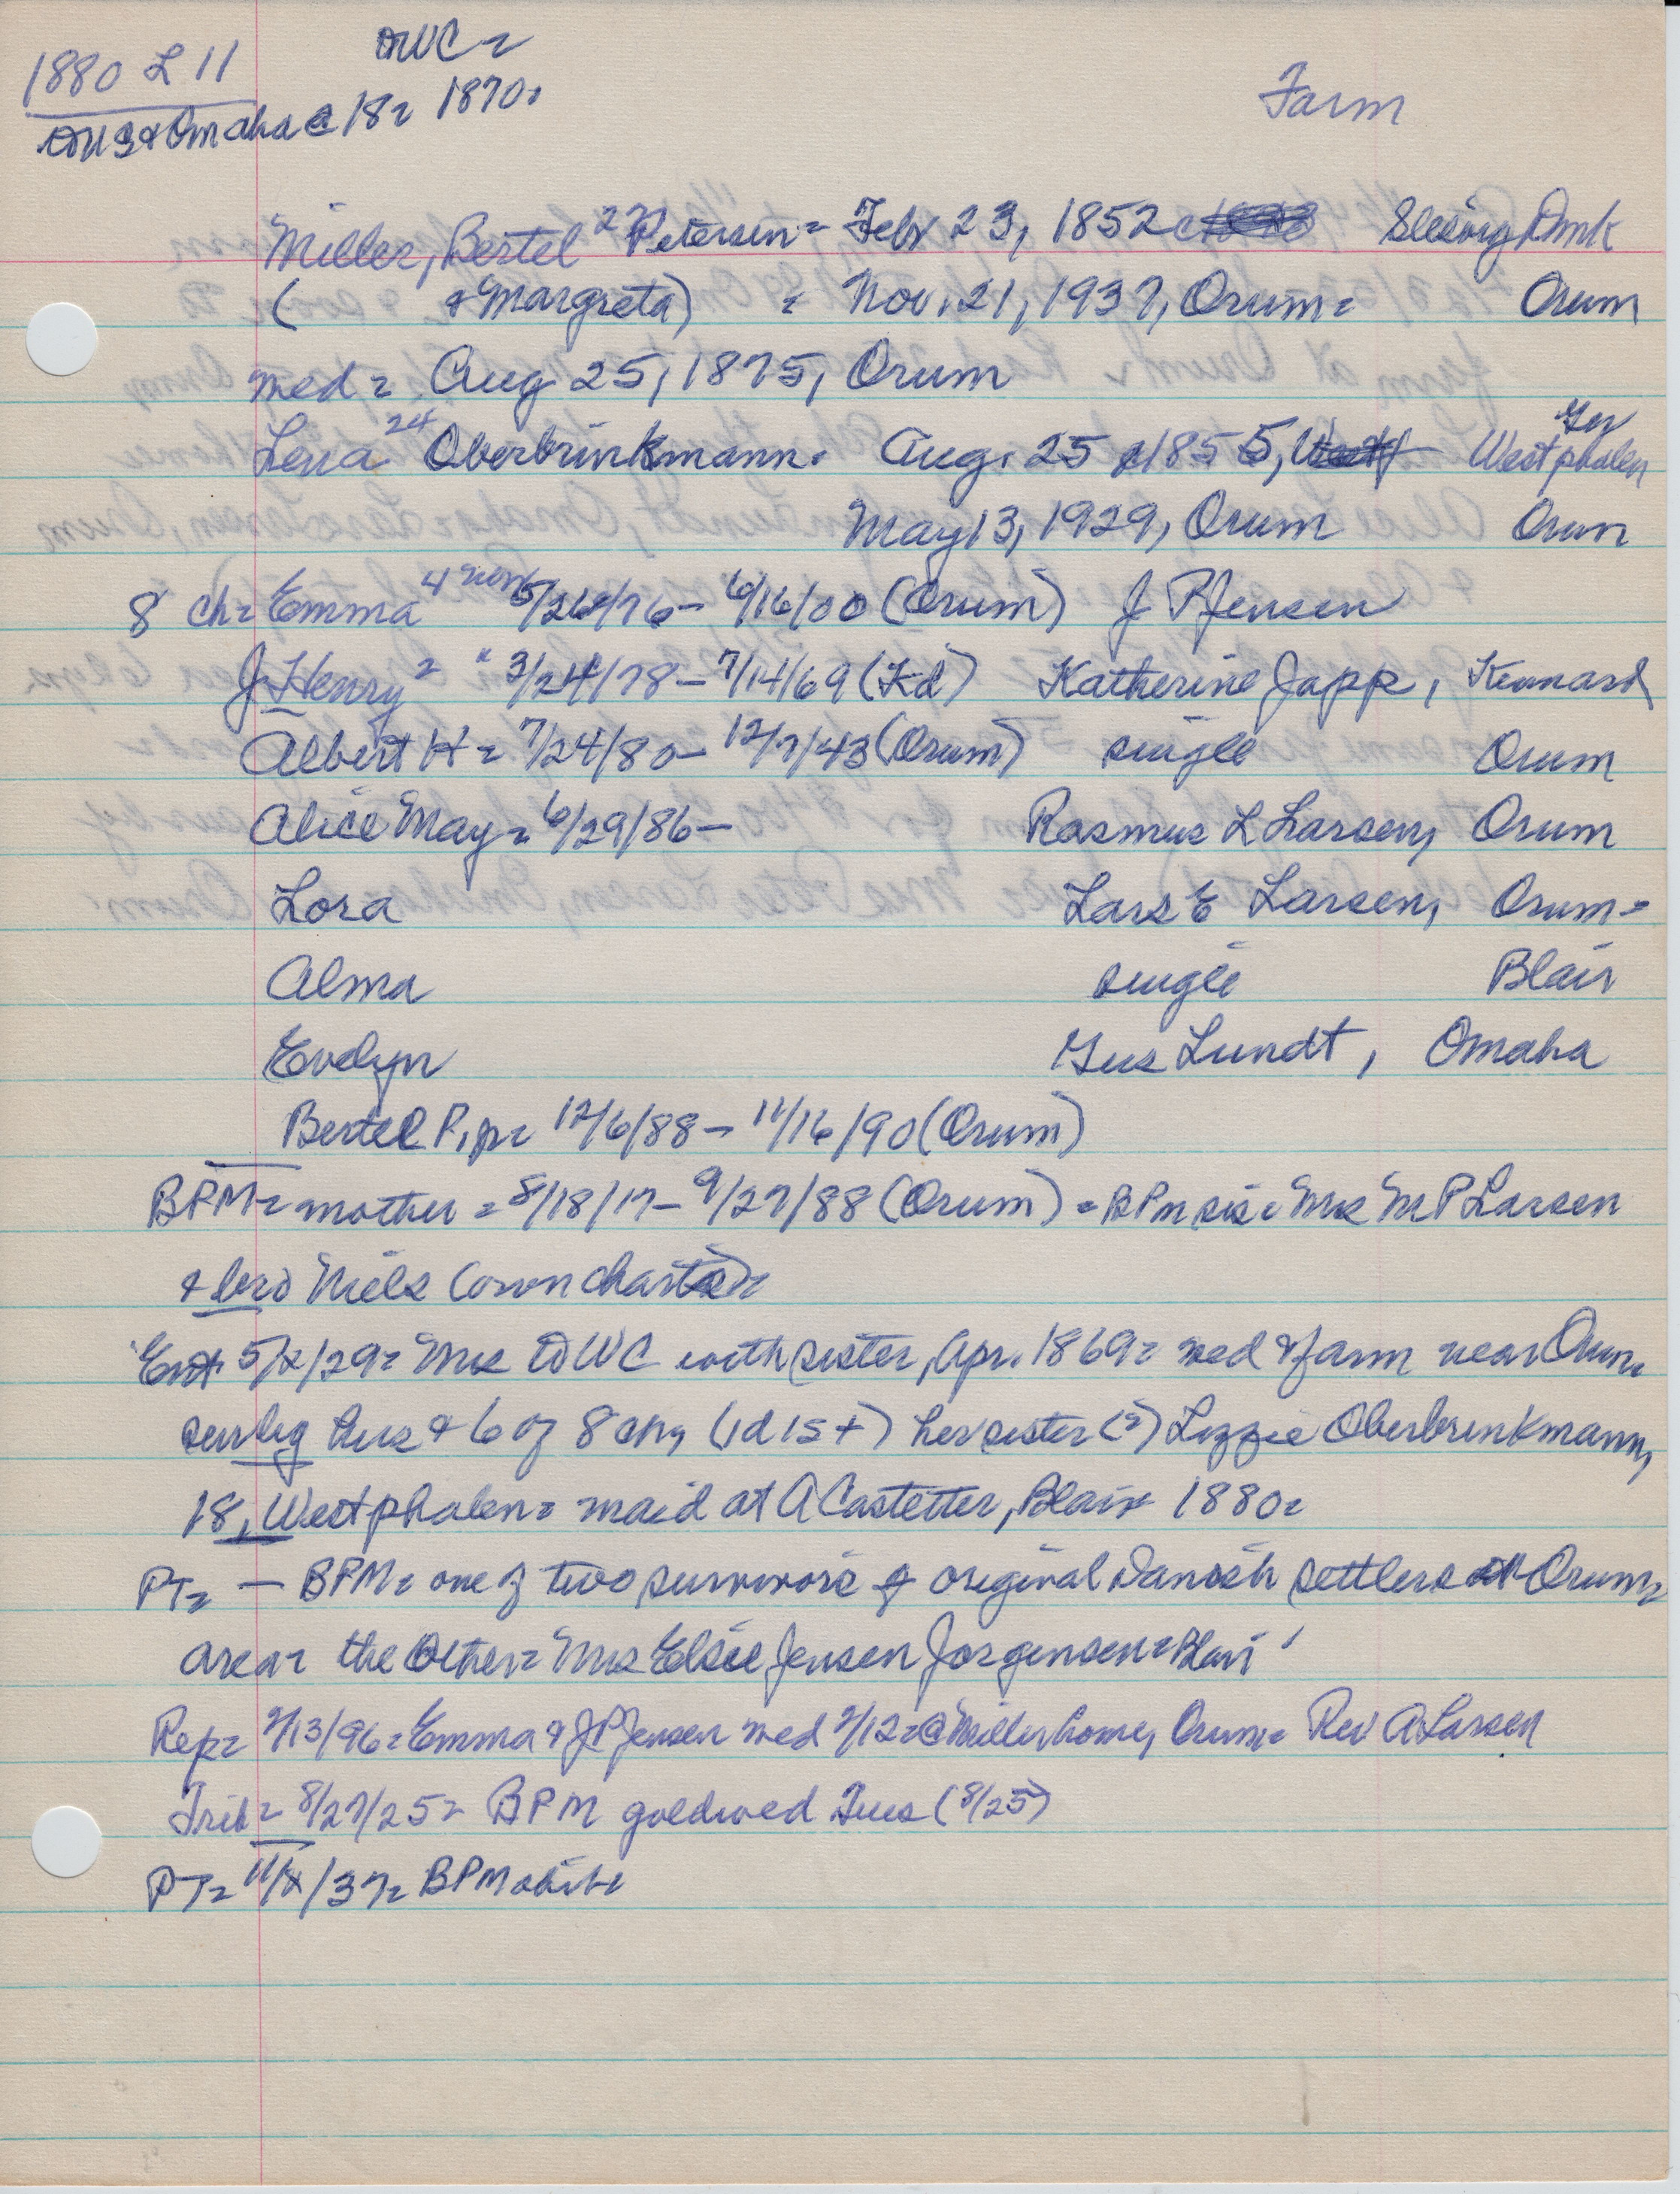 1880 L 11
DWC =
to US & Omaha c 18 = 1870.
Farm
Miller, Bertel 27 Petersen = Feb 23, 1852 Slesvig Dmk
( & Margreta) = Nov. 21, 1937, Orum = Orum
med = Aug 25, 1875, Orum
Lena 24 Oberbrinkmann. Aug. 25, 1855, Ger Westphalen
May 13, 1929, Orum Orum
8 ch = Emma 4 mon 5/26/76 - 6/16/00 (Orum) J P Jensen
J. Henry 2 " 3/24/78 - 7/14/69 (Kd) Katherine Japp, Kennard
Albert H = 7/24/80 - 12/7/43 (Orum) single Orum
Alice May = 6/29/86 - Rasmus L Larsen, Orum
Lora Lars E Larsen, Orum =
Alma single Blair
Evelyn Gus Lundt, Omaha
Bertel P, jr = 12/6/88 - 11/16/90 (Orum)
BPM = mother = 8/18/17 - 9/27/88 (Orum) = BPM sis = Mrs M P Larsen
& bro Niels (own chart) =
Ent 5/x/29 = Mrs to WC with sister, Apr. 1869 = med & farm near Orum =
survbg hus & 6 of 8 chn, (1 d 15 +) her sister (?) Lizzie Oberbrinkmann,
18, Westphalen = maid at A Castetter, Blair 1880 =
PT = - BPM = one of two survivors of original Danish settlers at Orum
area = the other = Mrs Elsie Jensen Jorgensen = Blair
Rep = 2/13/96 = Emma & JP Jensen med 2/12 = @ Miller home, Orum = Rev A Larsen
Trib = 8/27/25 = BPM goldwed Tues (8/25)
PT = 11/x/37 = BPM obit =